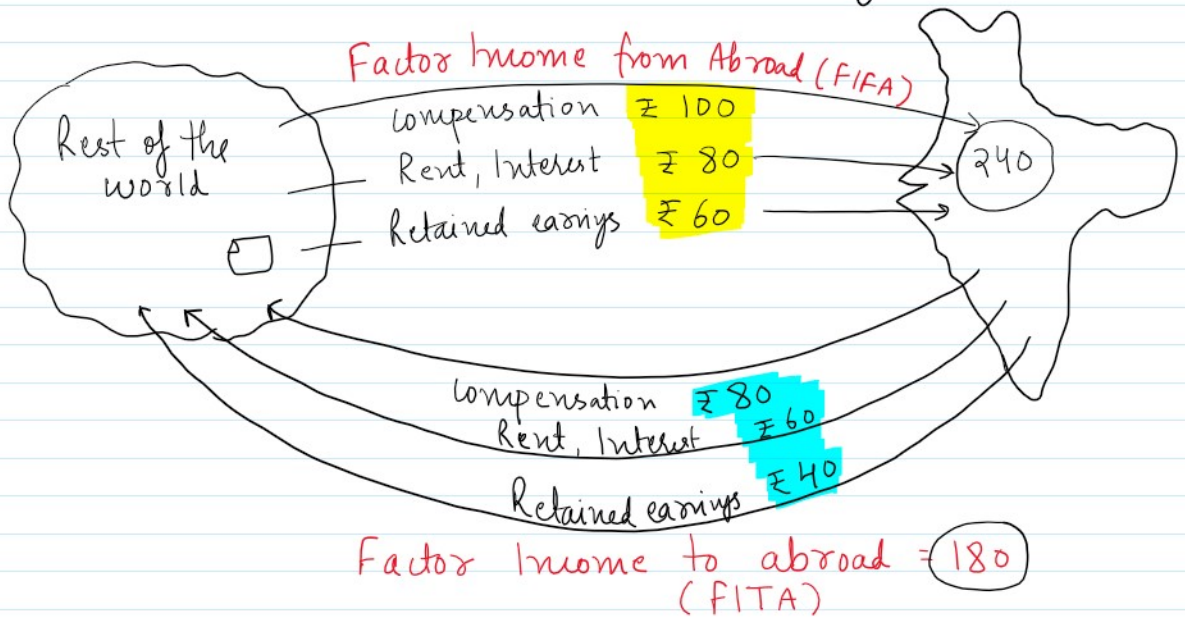 Factor Income from Abroad (FIFA)
Rest of the
world
Compensation ₹ 100
Rent, Interest ₹ 80
Retained earnigs ₹ 60
240
Compensation ₹ 80
Rent, Interest ₹ 60
Retained earnings ₹ 40
Factor Income to abroad = 180
(FITA)